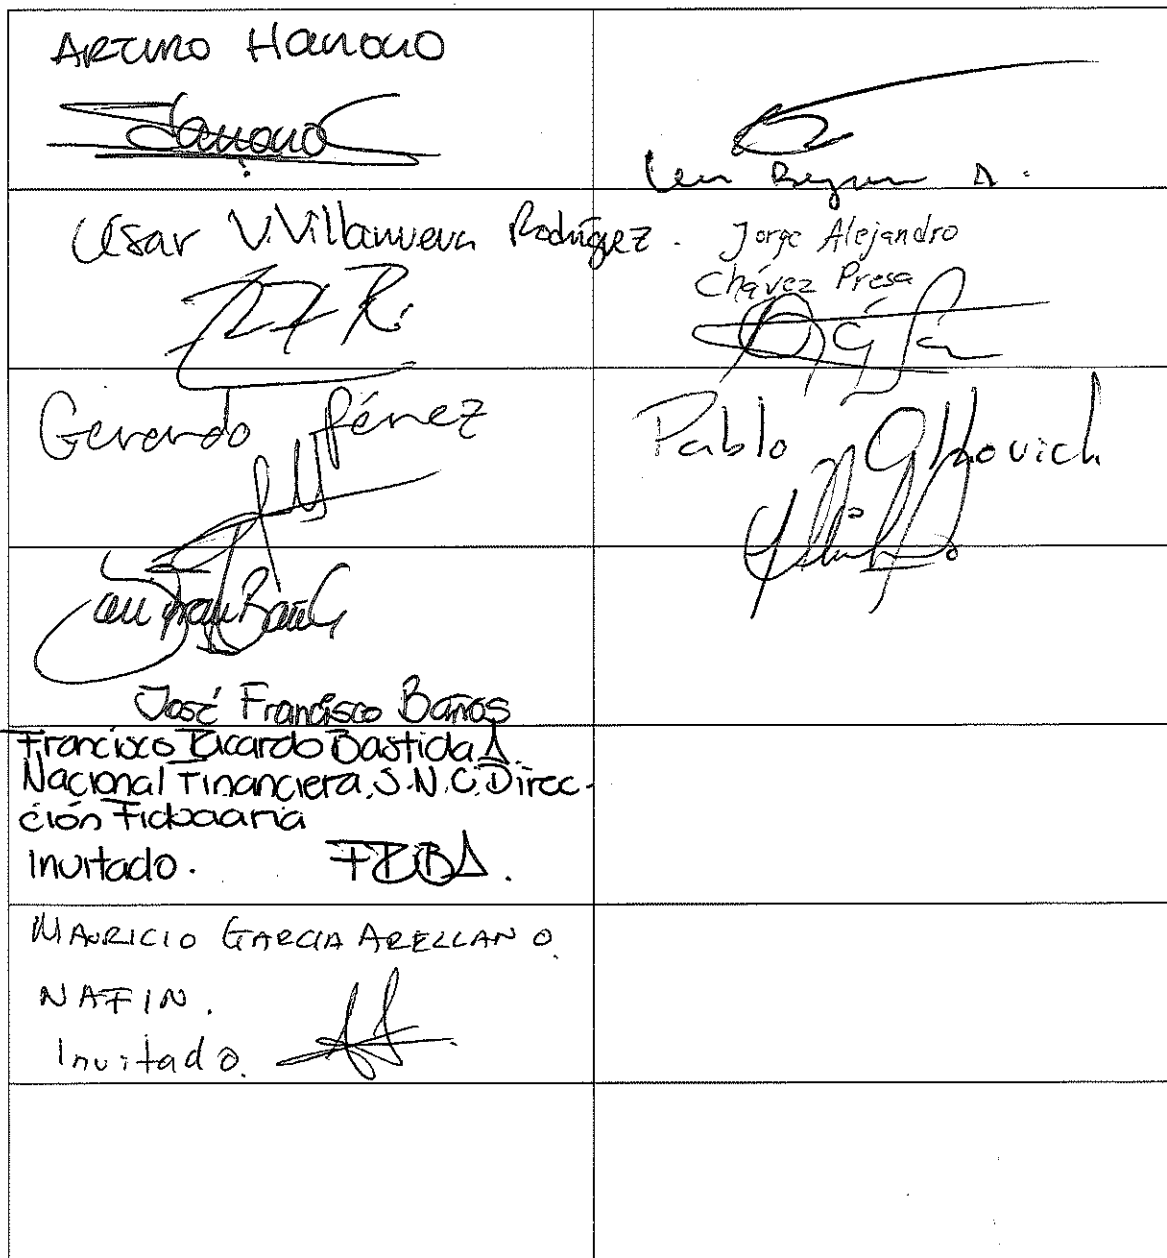 Arturo Hanono
Hanono
César V. Villanueva Rodríguez.
Jorge Alejandro
Chávez Presa
Gerardo Pérez
Pablo
José Francisco Baños
Francisco Ricardo Bastida A.
Nacional Financiera, S.N.C. Direc-
ción Fiduciaria
Invitado. FRBA.
MAURICIO GARCIA ARELLANO.
NAFIN.
Invitado.